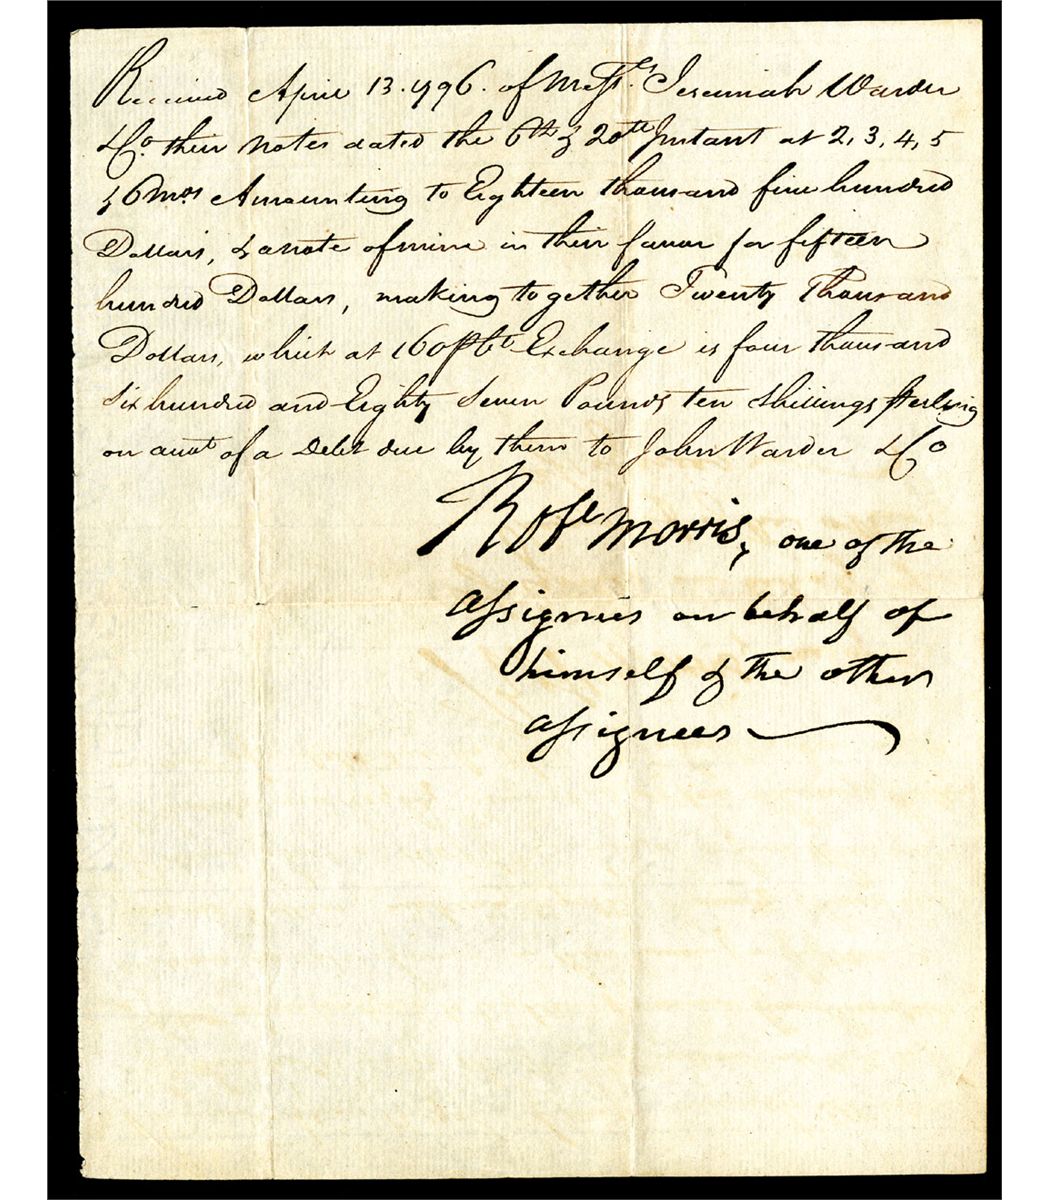 Received April 13. 1796. of Messrs. Jeremiah Warder
& Co. their Notes dated the 6th & 20th Instant at 2, 3, 4, 5
& 6 Mos Amounting to Eighteen thousand five hundred
Dollars, & a note of mine in their favor for fifteen
hundred Dollars, making together Twenty Thousand
Dollars, which at 160 pCt Exchange is four thousand
Six hundred and Eighty Seven Pounds ten Shillings sterling
on accot of a Debt due by them to John Warder & Co
Robt Morris, one of the
assignees on behalf of
himself & the other
assignees